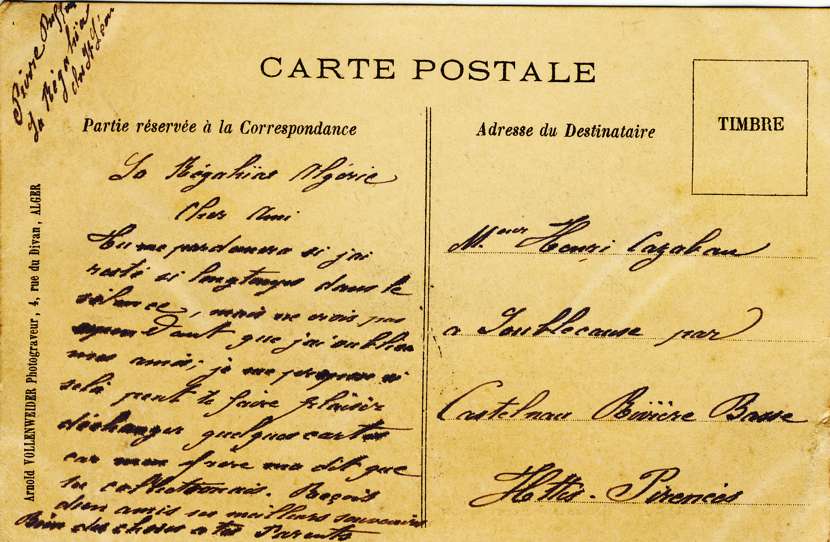 Pierre
La Régahïa
chez St Léon
CARTE POSTALE
Partie réservée à la Correspondance
Adresse du Destinataire
TIMBRE
Arnold VOLLENWEIDER Photograveur, 4, rue du Divan, ALGER
La Régahïas Algérie
Cher Ami
Tu me pardonera si j'ai
resté si longtemps dans le
silence, mais ne crois pas
pour tant que j'ai oublier
mes amis; je me propose si
selà peut te faire plaisir
déchanger quelques cartes
car mon frère ma dit que
tu collectionnais. Reçois
d'un amis ses meilleurs souvenirs
Bien des choses a tes Parents
Mʳ Henri Cazaban
a Soublecause par
Castelnau Rivière Basse
Htes-Pirenées